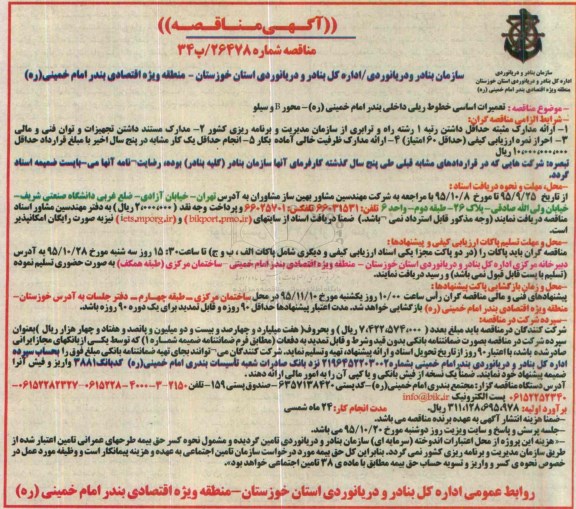 ((آگهی مناقصه))
مناقصه شماره ۲۶۴۷۸/پ۳۴
سازمان بنادر و دریانوردی
اداره کل بنادر و دریانوردی استان خوزستان
منطقه ویژه اقتصادی بندر امام خمینی (ره)
سازمان بنادر ودریانوردی/اداره کل بنادر و دریانوردی استان خوزستان - منطقه ویژه اقتصادی بندر امام خمینی(ره)
-موضوع مناقصه: تعمیرات اساسی خطوط ریلی داخلی بندر امام خمینی (ره)- محور B و سیلو
-شرایط الزامی مناقصه گران:
۱- ارائه مدارک مثبته حداقل داشتن رتبه ۱ رشته راه و ترابری از سازمان مدیریت و برنامه ریزی کشور ۲- مدارک مستند داشتن تجهیزات و توان فنی و مالی
۳- احراز نمره ارزیابی کیفی (حداقل ۶۰ امتیاز) ۴- ارائه مدارک ظرفیت خالی آماده بکار ۵- انجام حداقل یک کار مشابه در پنج سال اخیر با مبلغ قرارداد حداقل
ریال
تبصره: شرکت هایی که در قراردادهای مشابه قبلی طی پنج سال گذشته کارفرمای آنها سازمان بنادر (کلیه بنادر) بوده، رضایت نامه آنها می بایست ضمیمه اسناد
گردد.
-محل، مهلت و نحوه دریافت اسناد:
از تاریخ ۹۵/۹/۲۵ تا مورخ ۹۵/۱۰/۸ با مراجعه به شرکت مهندسین مشاور بهین ساز مشاوران به آدرس تهران- خیابان آزادی- ضلع غربی دانشگاه صنعتی شریف-
خیابان ولی الله صادقی- پلاک ۲۶- طبقه دوم- واحد ۶ تلفن: ۶۶۰۳۱۵۳۱ تلفکس: ۶۶۰۲۵۷۰۱ و پرداخت وجه نقد (۲،۰۰۰،۰۰۰ ریال) به دفتر مهندسین مشاور اسناد
مناقصه دریافت نمایند (وجه مذکور قابل استرداد نمی باشد). ضمنا دریافت اسناد از سایتهای (bikport.pmo.ir) و (iets.mporg.ir) نیز به صورت رایگان امکانپذیر
است.
-محل و مهلت تسلیم پاکات ارزیابی کیفی و پیشنهادها:
مناقصه گران باید پاکات را (در دو پاکت مجزا یکی اسناد ارزیابی کیفی و دیگری شامل پاکات الف، ب و ج) تا ساعت ۱۵:۳۰ روز سه شنبه مورخ ۹۵/۱۰/۲۸ به آدرس
دبیرخانه مرکزی اداره کل بنادر و دریانوردی استان خوزستان - منطقه ویژه اقتصادی بندر امام خمینی - ساختمان مرکزی (طبقه همکف) به صورت حضوری تسلیم نموده
(تسلیم با پست قابل قبول نمی باشد) و رسید دریافت نمایند.
-محل و زمان بازگشایی پاکت پیشنهادها:
پیشنهادهای فنی و مالی مناقصه گران رأس ساعت ۱۰/۰۰ روز یکشنبه مورخ ۹۵/۱۱/۱۰ در محل ساختمان مرکزی - طبقه چهارم- دفتر جلسات به آدرس خوزستان-
منطقه ویژه اقتصادی بندر امام خمینی (ره) بازگشایی خواهد شد. مدت اعتبار پیشنهادها حداقل ۹۰ روزه و قابل تمدید برای یک دوره ۹۰ روزه باشد.
-سپرده شرکت در مناقصه:
شرکت کنندگان در مناقصه باید مبلغ بعدد (۷،۴۲۲،۵۷۴،۰۰۰ ریال) و بحروف (هفت میلیارد و چهارصد و بیست و دو میلیون و پانصد و هفتاد و چهار هزار ریال) بعنوان
سپرده شرکت در مناقصه بصورت ضمانتنامه بانکی بدون قید وشرط و قابل تمدید به دفعات (مطابق فرم ضمانتنامه ضمیمه شماره ۱) که توسط یکی ازبانکهای مجاز ایرانی
صادر شده باشد، با اعتبار ۹۰ روز از تاریخ تحویل اسناد و ارائه پیشنهاد، تهیه وتسلیم نماید. شرکت کنندگان می توانند بجای تهیه ضمانتنامه بانکی مبلغ فوق را بحساب سپرده
اداره کل بنادر و دریانوردی بندر امام خمینی بشماره ۲۱۹۶۴۵۲۲۰۳۰۰۲ نزد بانک صادرات شعبه تأسیسات بندری امام خمینی (ره) کدبانک ۳۸۸۱ واریز و فیش آنرا
ضمیمه پیشنهاد خود نمایند. ضمنا یک نسخه از فیش بانکی و یا کپی آن را به امور مالی ارائه دهند.
آدرس دستگاه مناقصه گزار: مجتمع بندری امام خمینی(ره)-کدپستی ۶۳۵۷۱۳۸۴۲۰ -صندوق پستی ۱۵۹- تلفن
پست الکترونیک info@bik.ir
برآورد اولیه: ۳۱۱،۱۲۸،۶۹۵،۹۷۸ ریال. مدت انجام کار: ۲۴ ماه شمسی
-ضمنا هزینه انتشار آگهی به عهده برنده مناقصه می باشد.
-جلسه پرسش و پاسخ و سایت ویزیت روز دوشنبه مورخ ۹۵/۱۰/۲۰ می باشد.
-«هزینه این پروژه از محل اعتبارات اندوخته (سرمایه ای) سازمان بنادر و دریانوردی تامین گردیده و مشمول نحوه کسر حق بیمه طرحهای عمرانی تامین اعتبار شده از
طریق سازمان مدیریت و برنامه ریزی کشور نمی گردد. بنابراین کل حق بیمه مورد درخواست سازمان تامین اجتماعی به عهده و هزینه پیمانکار است و وظیفه مورد عمل در
خصوص نحوه ی کسر و واریز و تسویه حساب حق بیمه مطابق با ماده ی ۳۸ تامین اجتماعی خواهد بود».
روابط عمومی اداره کل بنادر و دریانوردی استان خوزستان-منطقه ویژه اقتصادی بندر امام خمینی (ره)